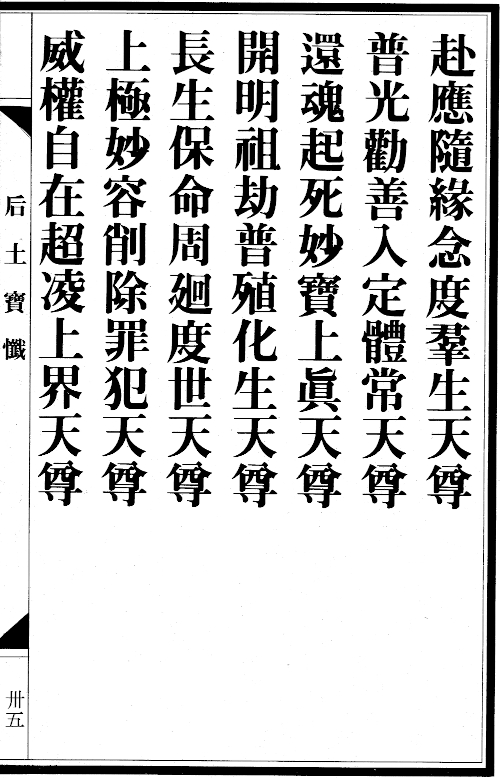 赴應隨緣念度羣生天尊
普光勸善入定體常天尊
還魂起死妙寶上眞天尊
開明祖劫普殖化生天尊
長生保命周廻度世天尊
上極妙容削除罪犯天尊
威權自在超凌上界天尊
后土寶懺
卅五